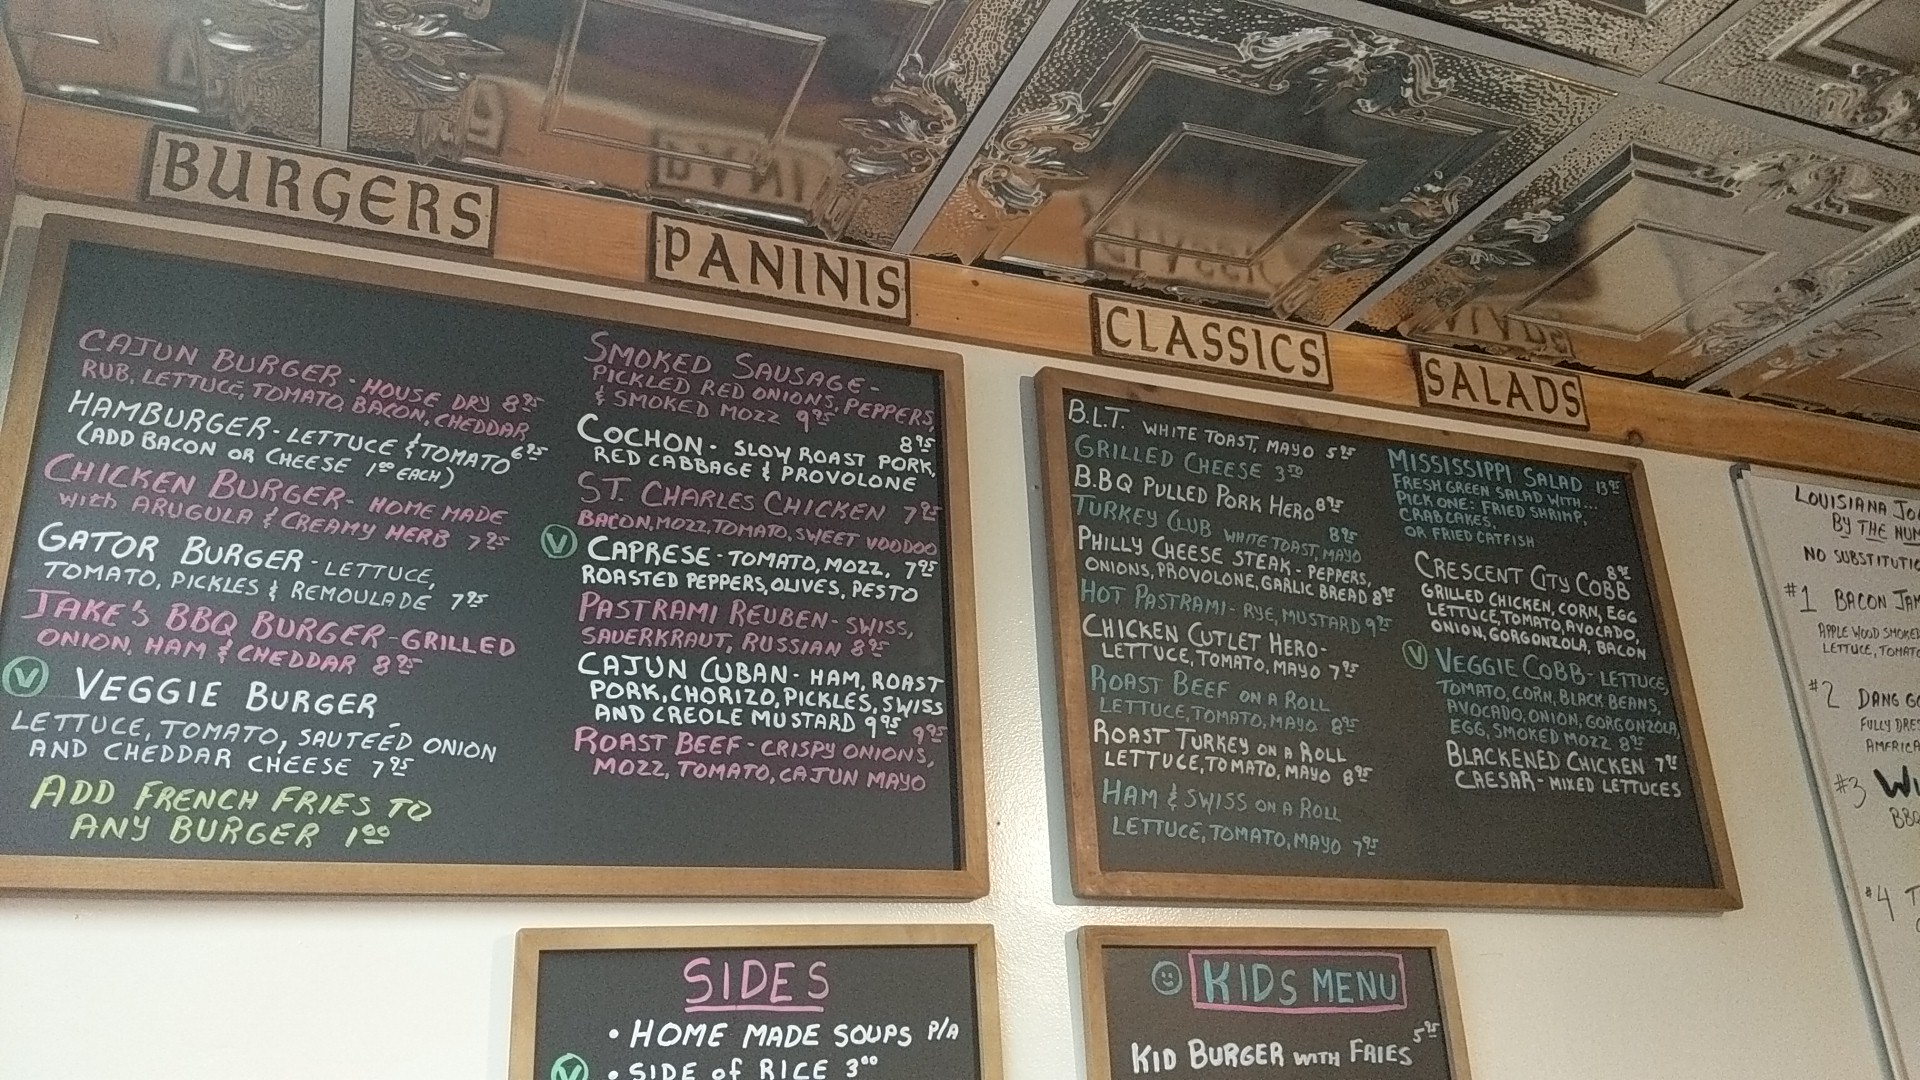 BURGERS
CAJUN BURGER - HOUSE DRY 8.95
RUB, LETTUCE, TOMATO, BACON, CHEDDAR
HAMBURGER - LETTUCE & TOMATO 6.95
(ADD BACON OR CHEESE 1.00 EACH)
CHICKEN BURGER - HOME MADE
with ARUGULA & CREAMY HERB 7.95
GATOR BURGER - LETTUCE,
TOMATO, PICKLES & REMOULADE 7.95
JAKE'S BBQ BURGER - GRILLED
ONION, HAM & CHEDDAR 8.95
V VEGGIE BURGER -
LETTUCE, TOMATO, SAUTEED ONION
AND CHEDDAR CHEESE 7.95
ADD FRENCH FRIES TO
ANY BURGER 1.00
PANINIS
SMOKED SAUSAGE -
PICKLED RED ONIONS, PEPPERS,
& SMOKED MOZZ 9.95
COCHON - SLOW ROAST PORK, 8.95
RED CABBAGE & PROVOLONE
ST. CHARLES CHICKEN 7.95
BACON, MOZZ, TOMATO, SWEET VOODOO
V CAPRESE - TOMATO, MOZZ, 7.95
ROASTED PEPPERS, OLIVES, PESTO
PASTRAMI REUBEN - SWISS,
SAUERKRAUT, RUSSIAN 8.95
CAJUN CUBAN - HAM, ROAST
PORK, CHORIZO, PICKLES, SWISS
AND CREOLE MUSTARD 9.95
ROAST BEEF - CRISPY ONIONS, 9.95
MOZZ, TOMATO, CAJUN MAYO
CLASSICS
B.L.T. WHITE TOAST, MAYO 5.95
GRILLED CHEESE 3.50
B.BQ PULLED PORK HERO 8.95
TURKEY CLUB WHITE TOAST, MAYO 8.95
PHILLY CHEESE STEAK - PEPPERS,
ONIONS, PROVOLONE, GARLIC BREAD 8.95
HOT PASTRAMI - RYE, MUSTARD 9.95
CHICKEN CUTLET HERO -
LETTUCE, TOMATO, MAYO 7.95
ROAST BEEF ON A ROLL
LETTUCE, TOMATO, MAYO 8.95
ROAST TURKEY ON A ROLL
LETTUCE, TOMATO, MAYO 8.95
HAM & SWISS ON A ROLL
LETTUCE, TOMATO, MAYO 7.95
SALADS
MISSISSIPPI SALAD 13.95
FRESH GREEN SALAD WITH...
PICK ONE: FRIED SHRIMP,
CRABCAKES,
OR FRIED CATFISH
CRESCENT CITY COBB 8.95
GRILLED CHICKEN, CORN, EGG
LETTUCE, TOMATO, AVOCADO,
ONION, GORGONZOLA, BACON
V VEGGIE COBB - LETTUCE,
TOMATO, CORN, BLACK BEANS,
AVOCADO, ONION, GORGONZOLA,
EGG, SMOKED MOZZ 8.95
BLACKENED CHICKEN 7.95
CAESAR - MIXED LETTUCES
LOUISIANA
BY THE
NO
#1 BACON
APPLE WOOD
LETTUCE,
#2 DANG
FULLY
#3
#4
SIDES
• HOME MADE SOUPS P/A
V • SIDE of RICE 3.00
KIDS MENU
KID BURGER WITH FRIES 5.95